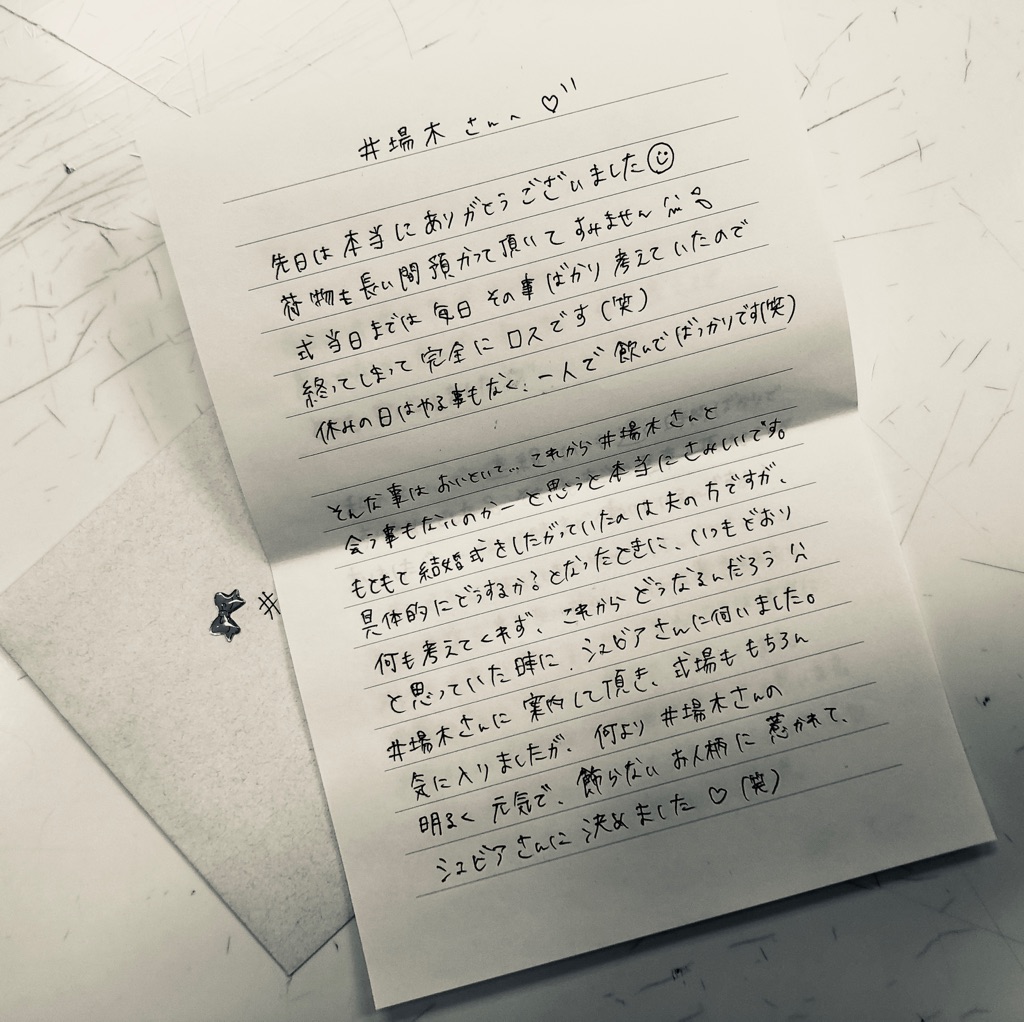 井場木さんへ♡
先日は本当にありがとうございました
荷物も長い間預かって頂いてすみません
式当日までは毎日その事ばかり考えていたので
終ってしまって完全にロスです(笑)
休みの日はやる事もなく、一人で飲んでばっかりです(笑)
そんな事はおいといて…これから井場木さんと
会う事もないのかーと思うと本当にさみしいです。
もともて結婚式をしたがっていたのは夫の方ですが、
具体的にどうするか？となったときに、いつもどおり
何も考えてくれず、これからどうなるんだろう
と思っていた時に、シュビアさんに伺いました。
井場木さんに案内して頂き、式場ももちろん
気に入りましたが、何より井場木さんの
明るく元気で、飾らないお人柄に惹かれて、
シュビアさんに決めました♡(笑)
井